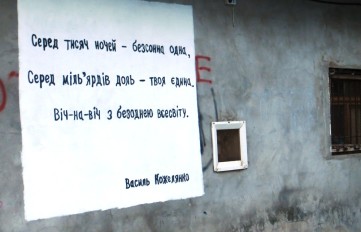 Серед тисяч ночей – безсонна одна,
Серед міль'ярдів доль – твоя єдина.
Віч-на-віч з безоднею всесвіту.
Василь Кожелянко